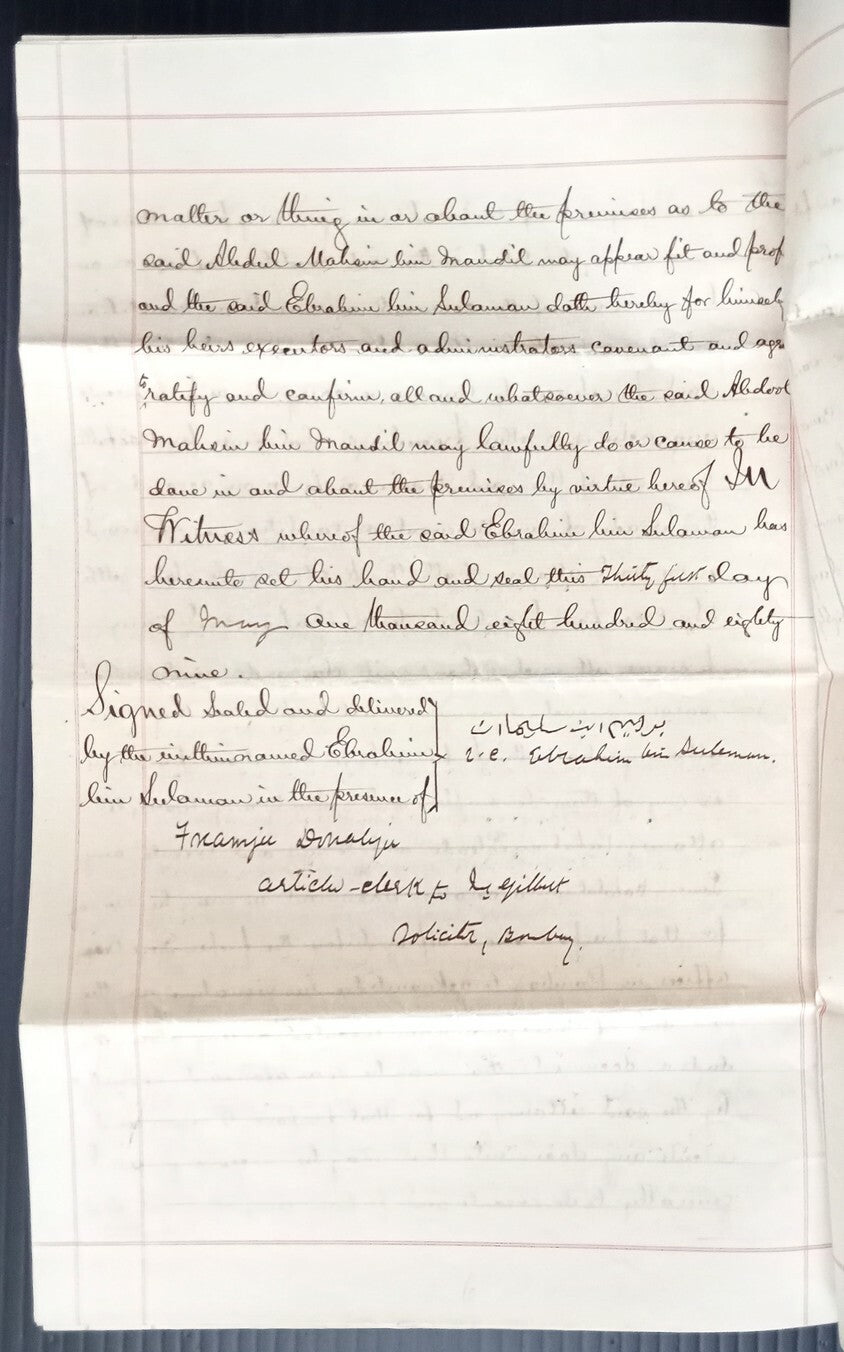 matter or thing in or about the premises as to the
said Abdul Mahsin bin Mandil may appear fit and prop
and the said Ebrahim bin Sulaman doth hereby for himself
his heirs executors and administrators covenant and agre
to ratify and confirm, all and whatsoever the said Abdool
Mahsin bin Mandil may lawfully do or cause to be
done in and about the premises by virtue hereof In
Witness whereof the said Ebrahim bin Sulaman has
hereunto set his hand and seal this Thirty first day
of May One thousand eight hundred and eighty
nine.
Signed sealed and delivered
by the withinnamed Ebrahim
bin Sulaman in the presence of
i.e. Ebrahim bin Suleman.
Framjee
article-clerk to Gilbert
Solicitor, Bombay.